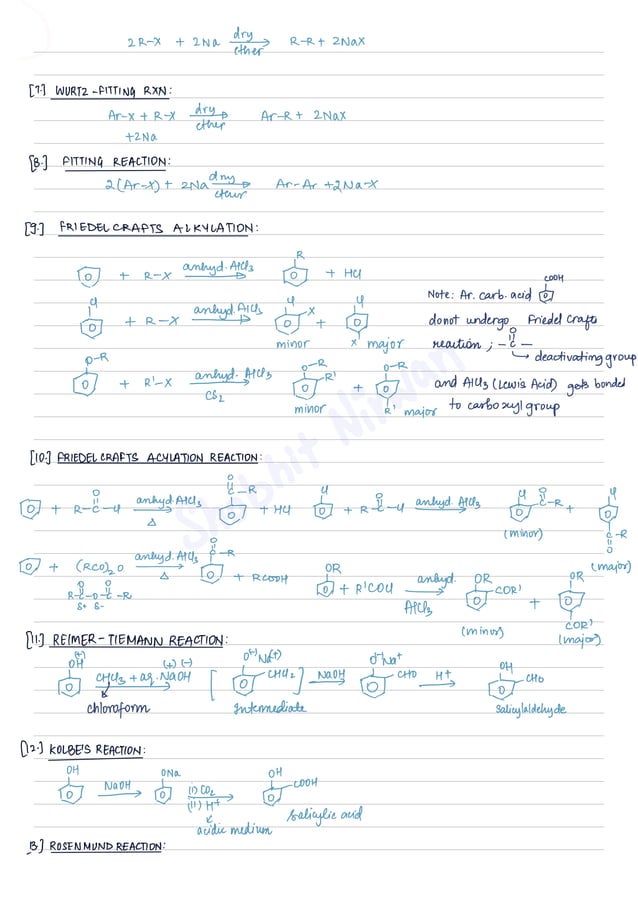 2R-X + 2Na dry ether → R-R + 2NaX
[7.] WURTZ-FITTING RXN:
Ar-X + R-X dry ether → Ar-R + 2NaX
+2Na
[8.] FITTING REACTION:
2(Ar-X) + 2Na dry ether → Ar-Ar + 2Na-X
[9.] FRIEDEL CRAFTS ALKYLATION:
+ R-X anhyd. AlCl3 → R + HCl
Cl + R-X anhyd. AlCl3 → Cl X minor + Cl X major
O-R + R'-X anhyd. AlCl3 CS2 → O-R R' minor + O-R R' major
Note: Ar. carb. acid COOH
donot undergo Friedel Crafts
reaction ; -C- O
→ deactivating group
and AlCl3 (Lewis Acid) gets bonded
to carboxyl group
[10.] FRIEDEL CRAFTS ACYLATION REACTION:
+ R-C-Cl O anhyd. AlCl3 Δ → O C-R + HCl
Cl + R-C-Cl O anhyd. AlCl3 → Cl O C-R (minor) + Cl C-R O (major)
+ (RCO)2O anhyd. AlCl3 Δ → O C-R + RCOOH
R-C-O-C-R O O
δ+ δ-
OR + R'COCl anhyd. AlCl3 → OR COR' (minor) + OR COR' (major)
[11.] REIMER-TIEMANN REACTION:
OH (+) CHCl3 + aq. NaOH (+) (-) → [ O(-)Na(+) CHCl2 NaOH → O-Na+ CHO H+ → OH CHO
chloroform Intermediate Salicylaldehyde
[12.] KOLBE'S REACTION:
OH NaOH → ONa (i) CO2 (ii) H+ → OH COOH
acidic medium
Salicylic acid
13.] ROSENMUND REACTION:
Shobhit Nirwan